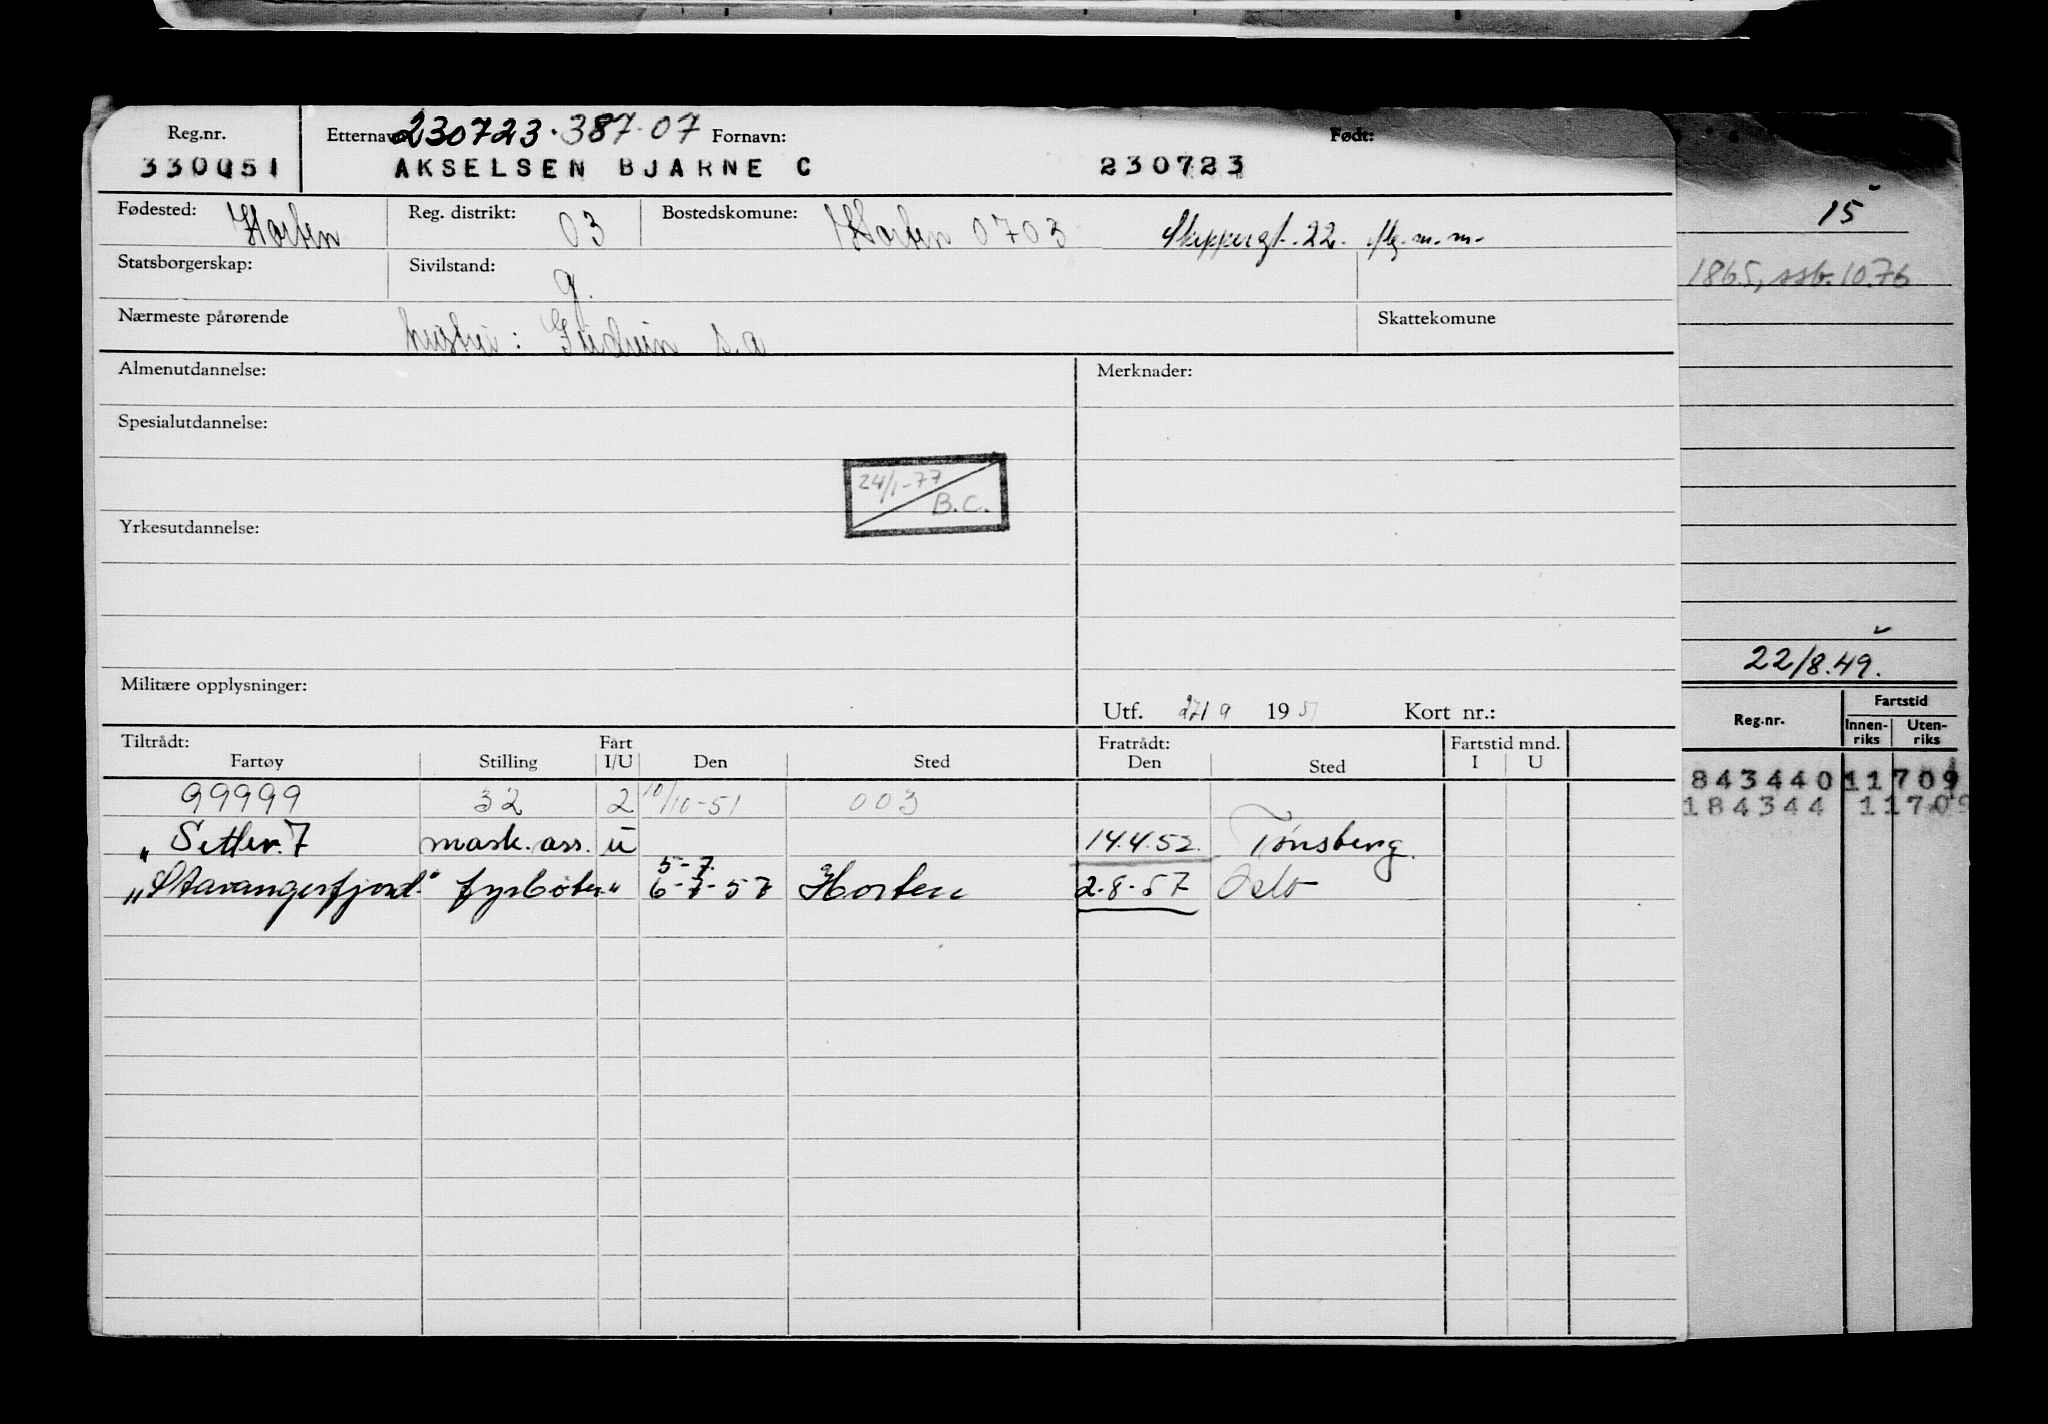 Reg.nr. Etternavn 230723.387.07 Fornavn: Født:
330051 AKSELSEN BJARNE C 230723
Fødested: Horten Reg. distrikt: 03 Bostedskomune: Horten 0703 Skippergt. 22.
Statsborgerskap: Sivilstand: g.
Nærmeste pårørende hustru: s.a Skattekomune
Almenutdannelse: Merknader:
Spesialutdannelse:
24/1-77
B.C.
Yrkesutdannelse:
Militære opplysninger:
Utf. 27/9 1951 Kort nr.:
Tiltrådt: Fart Fratrådt: Fartstid mnd.
Fartøy Stilling I/U Den Sted Den Sted I U
99999 32 2 10/10-51 003
"Setter 7 mask. ass. u 14.4.52. Tønsberg.
5-7.
"Stavangerfjord" fyrbøter " 6-7-57 Horten 2.8.57 Oslo
15
1865, ssb. 10.76
22/8.49.
Reg.nr. Fartstid
Innen-riks Uten-riks
843440 11709
184344 11709